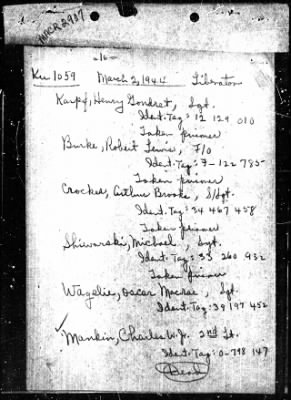 MACR 2917
- 16 -
Ku 1059 March 2, 1944 Liberator
Karpf, Henry Gondrat, Sgt.
Ident. Tag: 12 129 010
Taken prisoner
Burke, Robert Lewis, F/O
Ident. Tag: T-122 785
Taken prisoner
Crocker, Arthur Brooks, S/Sgt.
Ident. Tag: 34 467 458
Taken prisoner
Shiwarski, Michael, Sgt.
Ident. Tag: 33 260 932
Taken prisoner
Wagelie, Oscar Mocrae, Sgt
Ident. Tag: 39 197 452
Mankin, Charles W. Jr. 2nd Lt.
Ident. Tag: 0-798 147
Dead